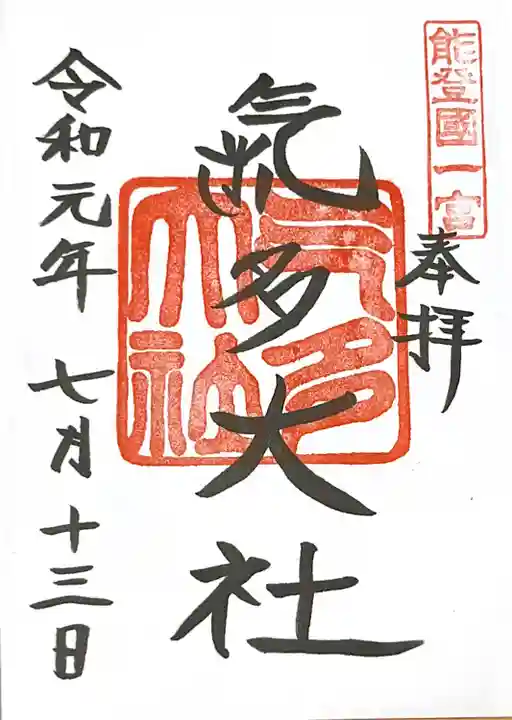 能登國一宮
奉拝
氣多大社
氣多大社
令和元年 七月十三日